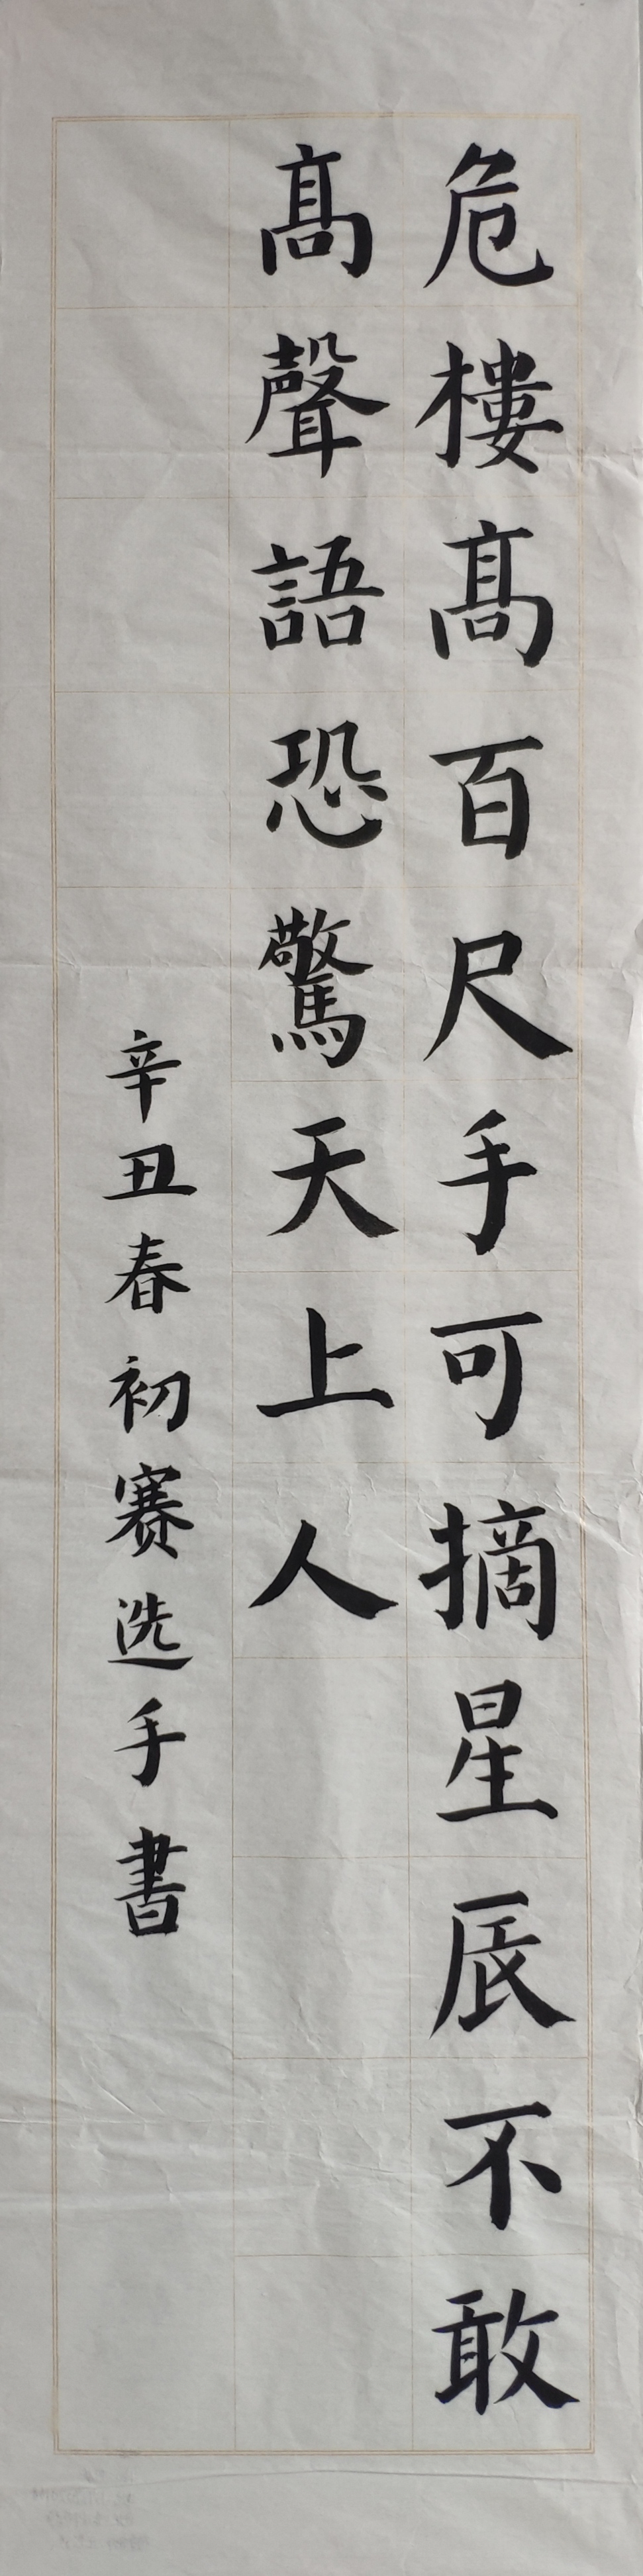 危樓髙百尺手可摘星辰不敢
髙聲語恐驚天上人
辛丑春初赛选手書